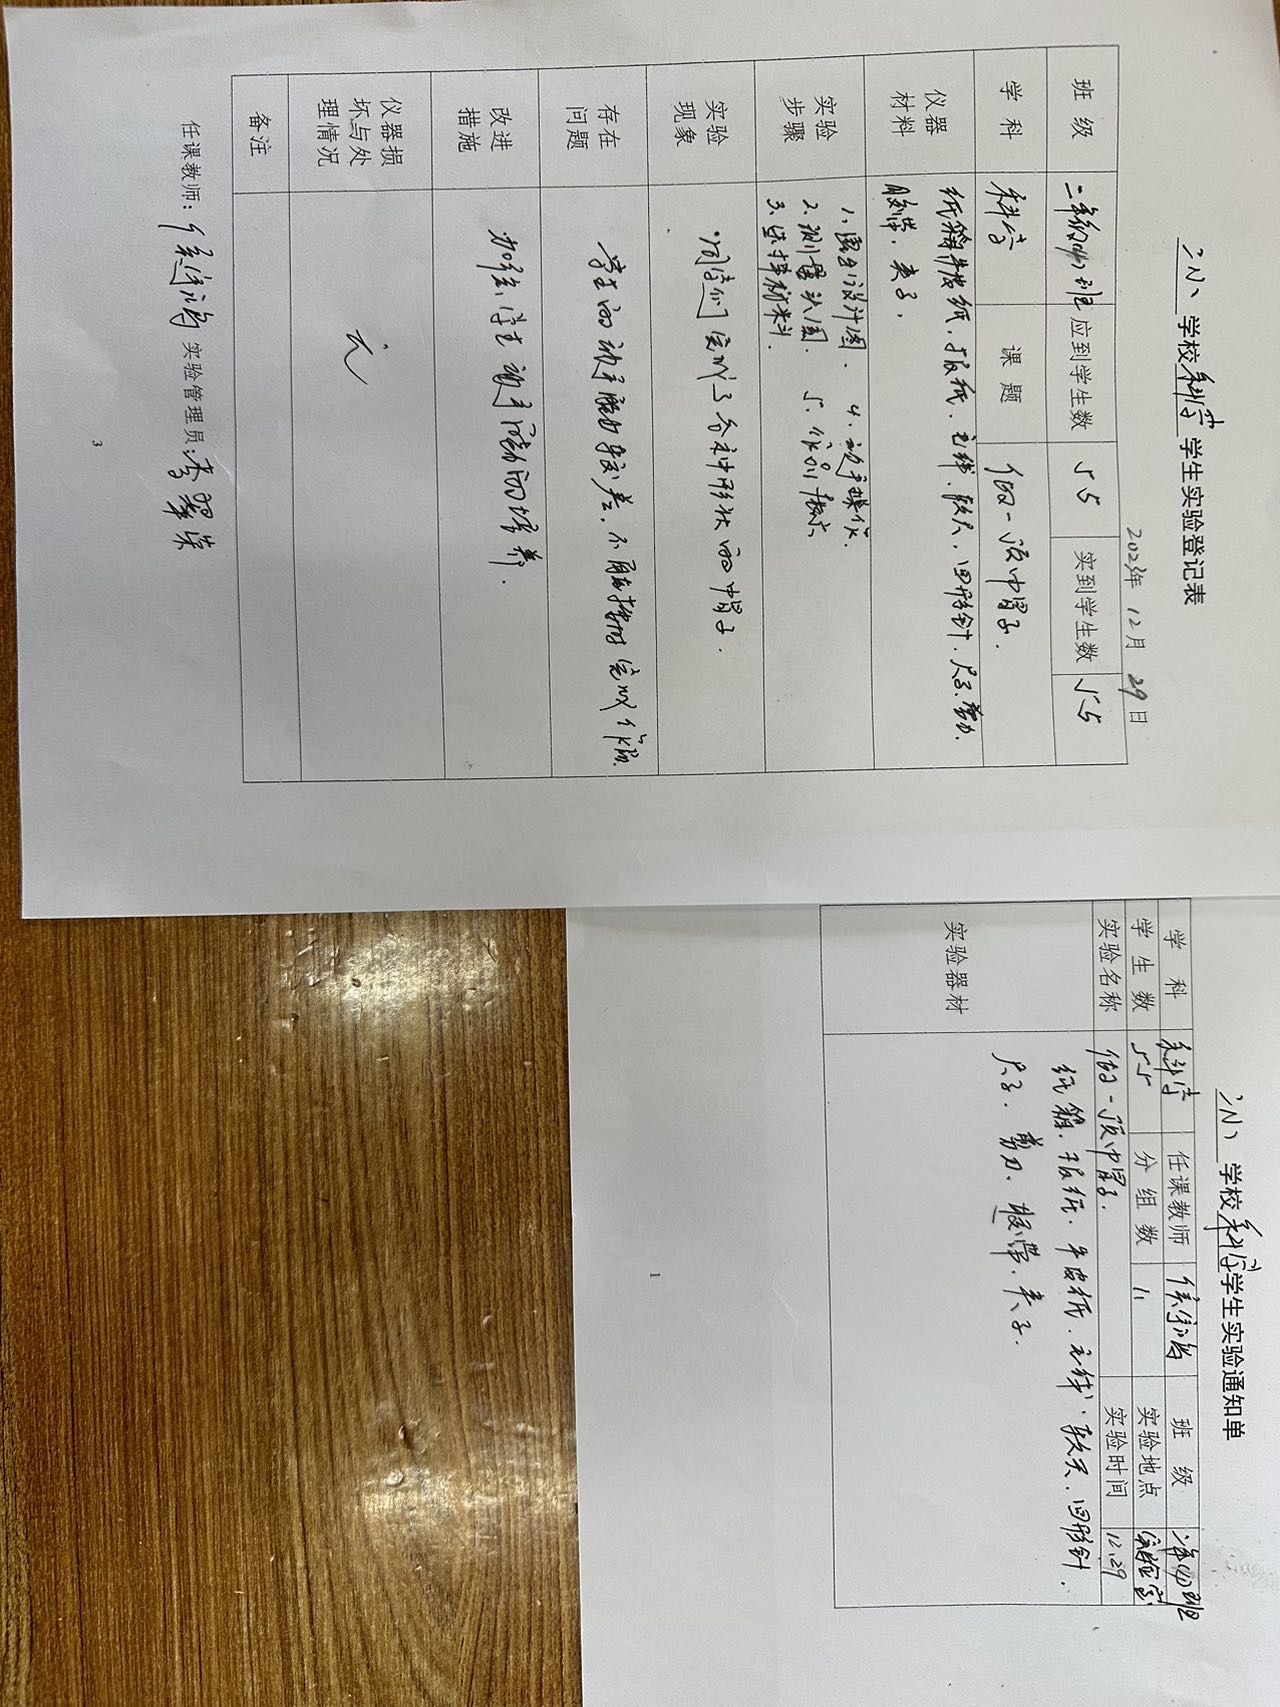 学校科学学生实验登记表
2023年 12月 29日
班级 二年级(4)班 应到学生数 55 实到学生数 55
学科 科学 课题 做一顶帽子.
仪器材料 纸箱、牛皮纸、报纸、毛线、软尺、回形针、尺子、剪刀、
胶带、夹子.
实验步骤 1、画出设计图. 4、动手操作.
2、测量头围. 5、作品展示
3、选择材料.
实验现象 同学们完成了各种形状的帽子.
存在问题 学生的动手能力较差,不能按时完成作品.
改进措施 加强学生动手能力的培养.
仪器损坏与处理情况 无
备注
任课教师: 实验管理员:李翠荣
3
学校科学学生实验通知单
学科 科学 任课教师 班级 二年(4)班
学生数 55 分组数 11 实验地点 实验室
实验名称 做一顶帽子. 实验时间 12.29
实验器材 纸箱、报纸、牛皮纸、毛线、软尺、回形针、
尺子、剪刀、胶带、夹子.
1